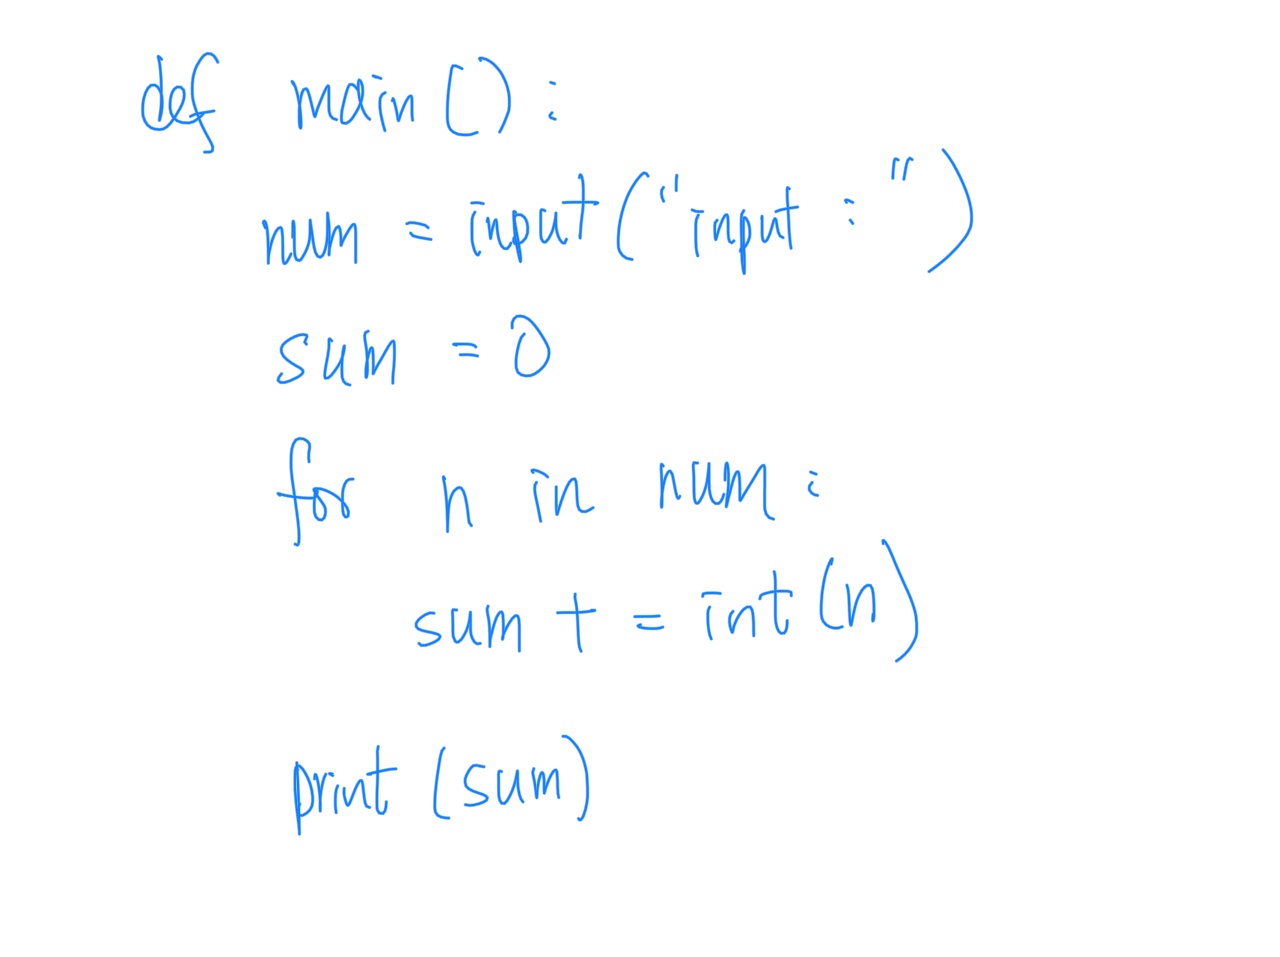 def main():
num = input("input : ")
sum = 0
for n in num:
sum + = int(n)
print (sum)